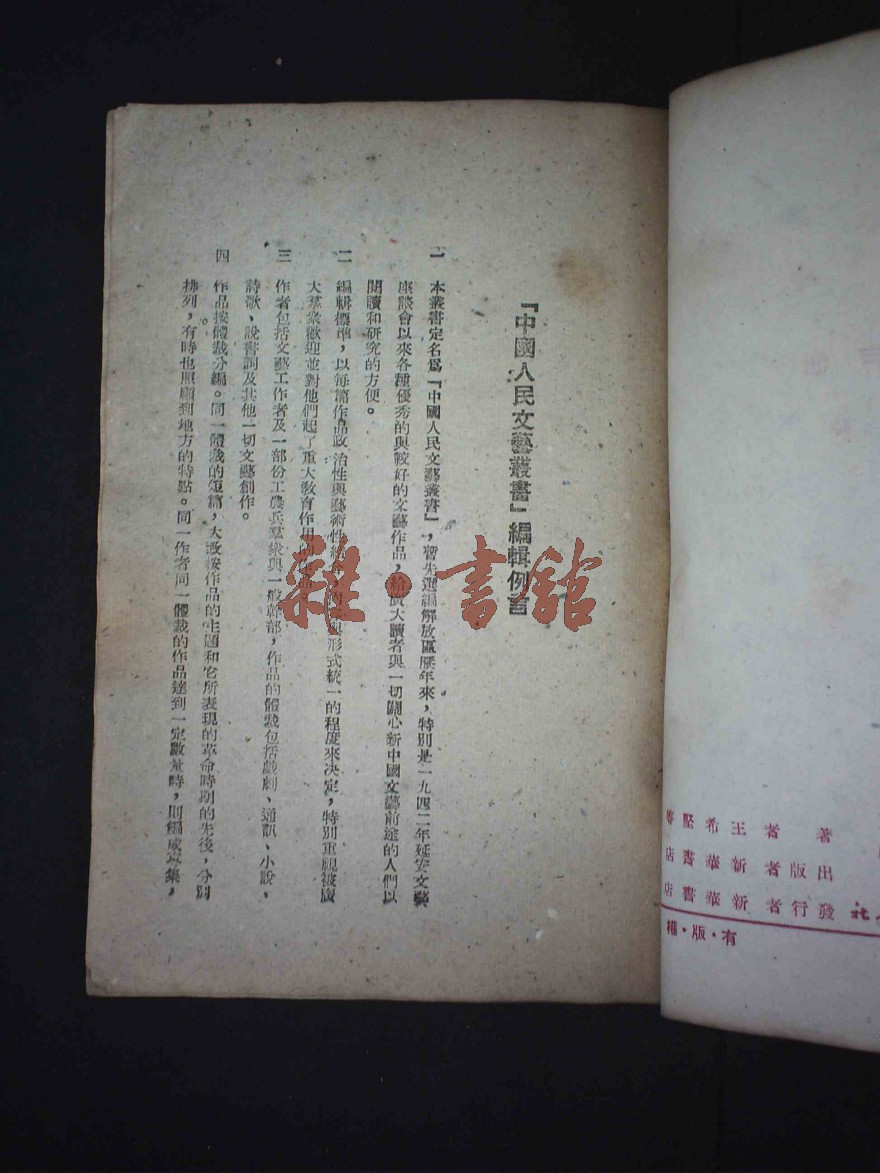 著者王希堅等
出版者新華書店
發行者新華書店
有·版·權
『中國人民文藝叢書』編輯例言
一　本叢書定名爲『中國人民文藝叢書』，暫先選編解放區歷年來，特別是一九四二年延安文藝
座談會以來各種優秀的與較好的文藝作品，給廣大讀者與一切關心新中國文藝前途的人們以
閱讀和研究的方便。
二　編輯標準，以每篇作品政治性與藝術性結合，內容與形式統一的程度來決定，特別重視被廣
大羣衆歡迎並對他們起了重大教育作用的作品。
三　作者包括文藝工作者及一部份工農兵羣衆與一般幹部，作品的體裁包括戲劇、通訊、小說、
詩歌、說書詞及其他一切文藝創作。
四　作品按體裁分編。同一體裁的短篇，大致按作品的主題和它所表現的革命時期的先後，分別
排列，有時也照顧到地方的特點。同一作者同一體裁的作品達到一定數量時，則編成專集，
雜·書館